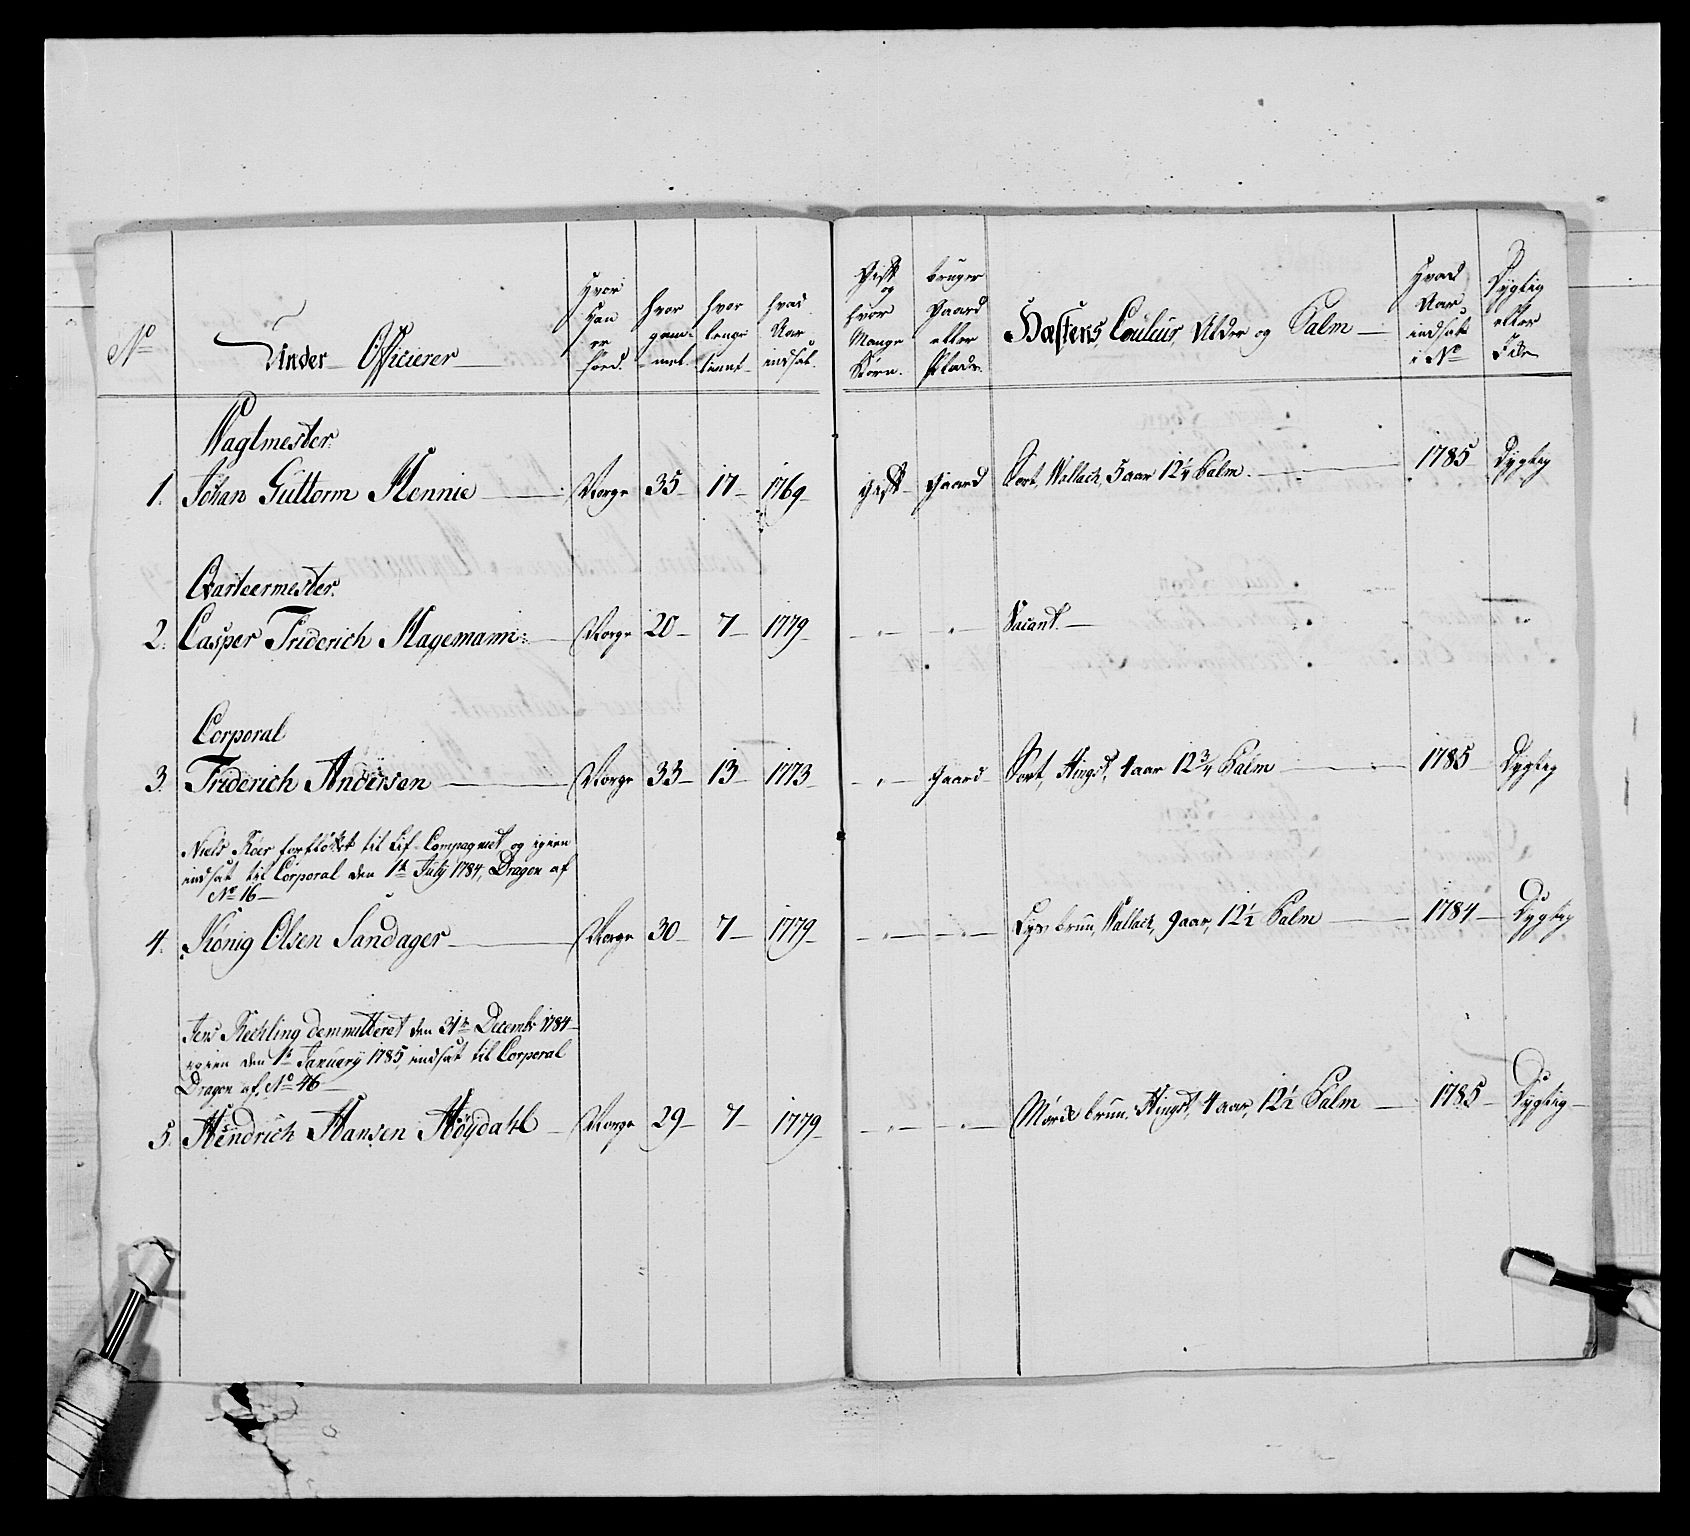 No
Under Officierer
Hvor
Han
er
föed.
hvor
gam-
mel.
hvor
lenge
tient
hvad
Aar
indsat.
Gift
og
hvor
Mange
Börn.
bruger
Gaard
eller
Plads.
Hæstens, Couleur, Alder og Palm
Hvad
Aar
indsat
i No
Dygtig
eller
Ei
Wagtmester
1. Johan Guttorm Klennie Norge 35 17 1769 gift Gaard Sort, Wallach, 5 aar 12 1/4 Palm. 1785 Dygtig
Qvarteermester.
2. Casper Friderich Hagemann Norge 20 7 1779 Vacant
Corporal
3. Friderich Andersen Norge 33 13 1773 Gaard Sort, Hingst, 4 aar 12 3/4 Palm 1785 Dygtig
Niels Röer forflöttet til Lif-Compagniet og igien
indsat til Corporal den 1t July 1784, Dragon af
No 16
4. König Olsen Sandager Norge 30 7 1779 Lys brun, Wallach, 9 aar, 12 1/2 Palm 1784 Dygtig
Jens Kechling demmitteret den 31te Decembr 1784
igien den 1t January 1785, indsat til Corporal
Dragon af No 46
5. Hendrich Hansen Höydahl Norge 29 7 1779 Mörk brun, Hingst, 4 aar, 12 1/2 Palm 1785 Dygtig